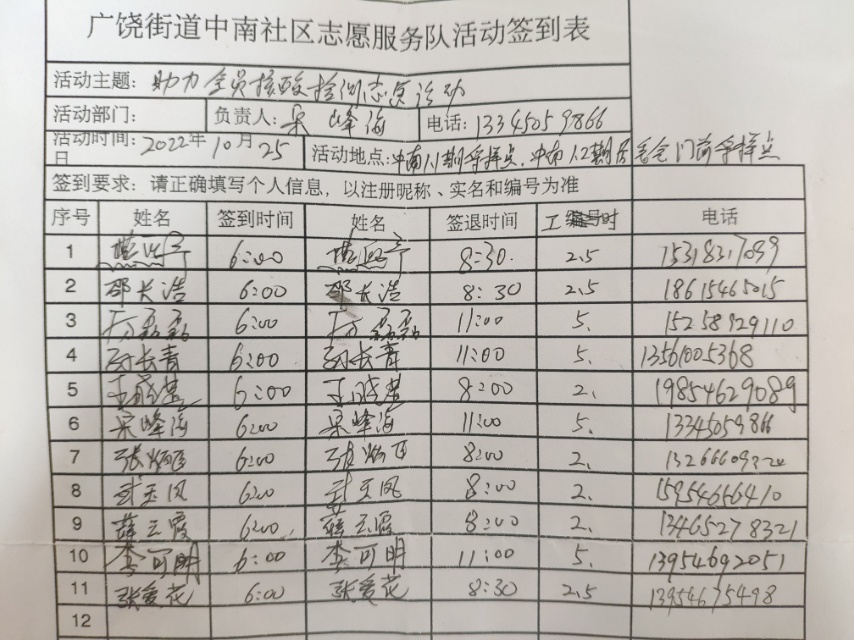 广饶街道中南社区志愿服务队活动签到表
活动主题：助力全员核酸检测志愿活动
活动部门： 负责人：宋峰海 电话：13345059866
活动时间：2022年10月25日 活动地点：中南八1期采样点、中南八2期 门前采样点
签到要求：请正确填写个人信息，以注册昵称、实名和编号为准
序号 姓名 签到时间 姓名 签退时间 工时 电话
1 6:00 8:30. 2.5 15318317099
2 邵长浩 6:00 邵长浩 8:30 2.5 18615465015
3 磊磊 6:00 磊磊 11:00 5、 15258929110
4 长青 6:00 长青 11:00 5、 13561005368
5 6:00 8:00 2、 19854629089
6 宋峰海 6:00 宋峰海 11:00 5、 13345059866
7 张 6:00 张 8:00 2、
8 武玉凤 6:00 武玉凤 8:00 2、 15954656410
9 薛云霞 6:00、 薛云霞 8:00 2、 13465278321
10 李可明 6:00 李可明 11:00 5、 13954692051
11 张爱花 6:00 张爱花 8:30 2.5 13954675498
12